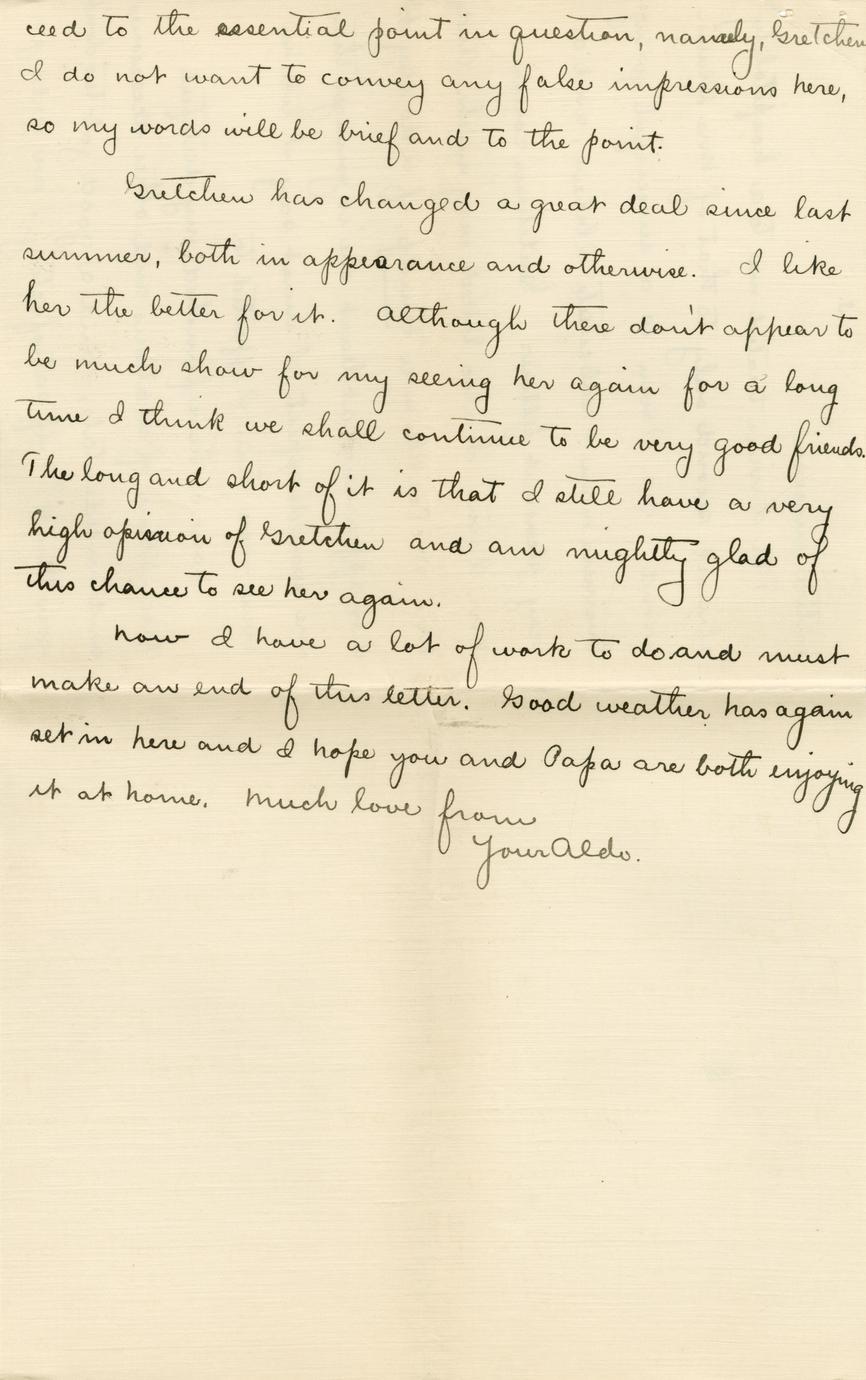 ceed to the essential point in question, namely, Gretchen
I do not want to convey any false impressions here,
so my words will be brief and to the point.
Gretchen has changed a great deal since last
summer, both in appearance and otherwise. I like
her the better for it. Although there don't appear to
be much show for my seeing her again for a long
time I think we shall continue to be very good friends.
The long and short of it is that I still have a very
high opinion of Gretchen and am mightly glad of
this chance to see her again.
Now I have a lot of work to do and must
make an end of this letter. Good weather has again
set in here and I hope you and Papa are both enjoying
it at home. Much love from
Your Aldo.